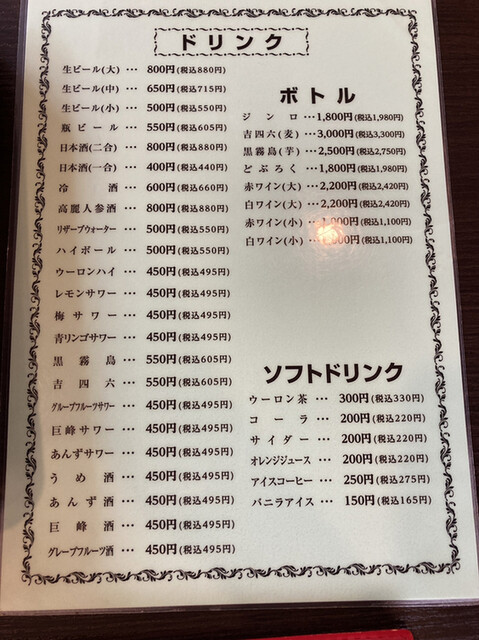 ドリンク
生ビール(大) … 800円(税込880円)
生ビール(中) … 650円(税込715円)
生ビール(小) … 500円(税込550円)
瓶ビール … 550円(税込605円)
日本酒(二合) … 800円(税込880円)
日本酒(一合) … 400円(税込440円)
冷酒 … 600円(税込660円)
高麗人参酒 … 800円(税込880円)
リザーブウォーター … 500円(税込550円)
ハイボール … 500円(税込550円)
ウーロンハイ … 450円(税込495円)
レモンサワー … 450円(税込495円)
梅サワー … 450円(税込495円)
青リンゴサワー … 450円(税込495円)
黒霧島 … 550円(税込605円)
吉四六 … 550円(税込605円)
グループフルーツサワー … 450円(税込495円)
巨峰サワー … 450円(税込495円)
あんずサワー … 450円(税込495円)
うめ酒 … 450円(税込495円)
あんず酒 … 450円(税込495円)
巨峰酒 … 450円(税込495円)
グレープフルーツ酒 … 450円(税込495円)
ボトル
ジンロ … 1,800円(税込1,980円)
吉四六(麦) … 3,000円(税込3,300円)
黒霧島(芋) … 2,500円(税込2,750円)
どぶろく … 1,800円(税込1,980円)
赤ワイン(大) … 2,200円(税込2,420円)
白ワイン(大) … 2,200円(税込2,420円)
赤ワイン(小) … 1,000円(税込1,100円)
白ワイン(小) … 1,000円(税込1,100円)
ソフトドリンク
ウーロン茶 … 300円(税込330円)
コーラ … 200円(税込220円)
サイダー … 200円(税込220円)
オレンジジュース … 200円(税込220円)
アイスコーヒー … 250円(税込275円)
バニラアイス … 150円(税込165円)